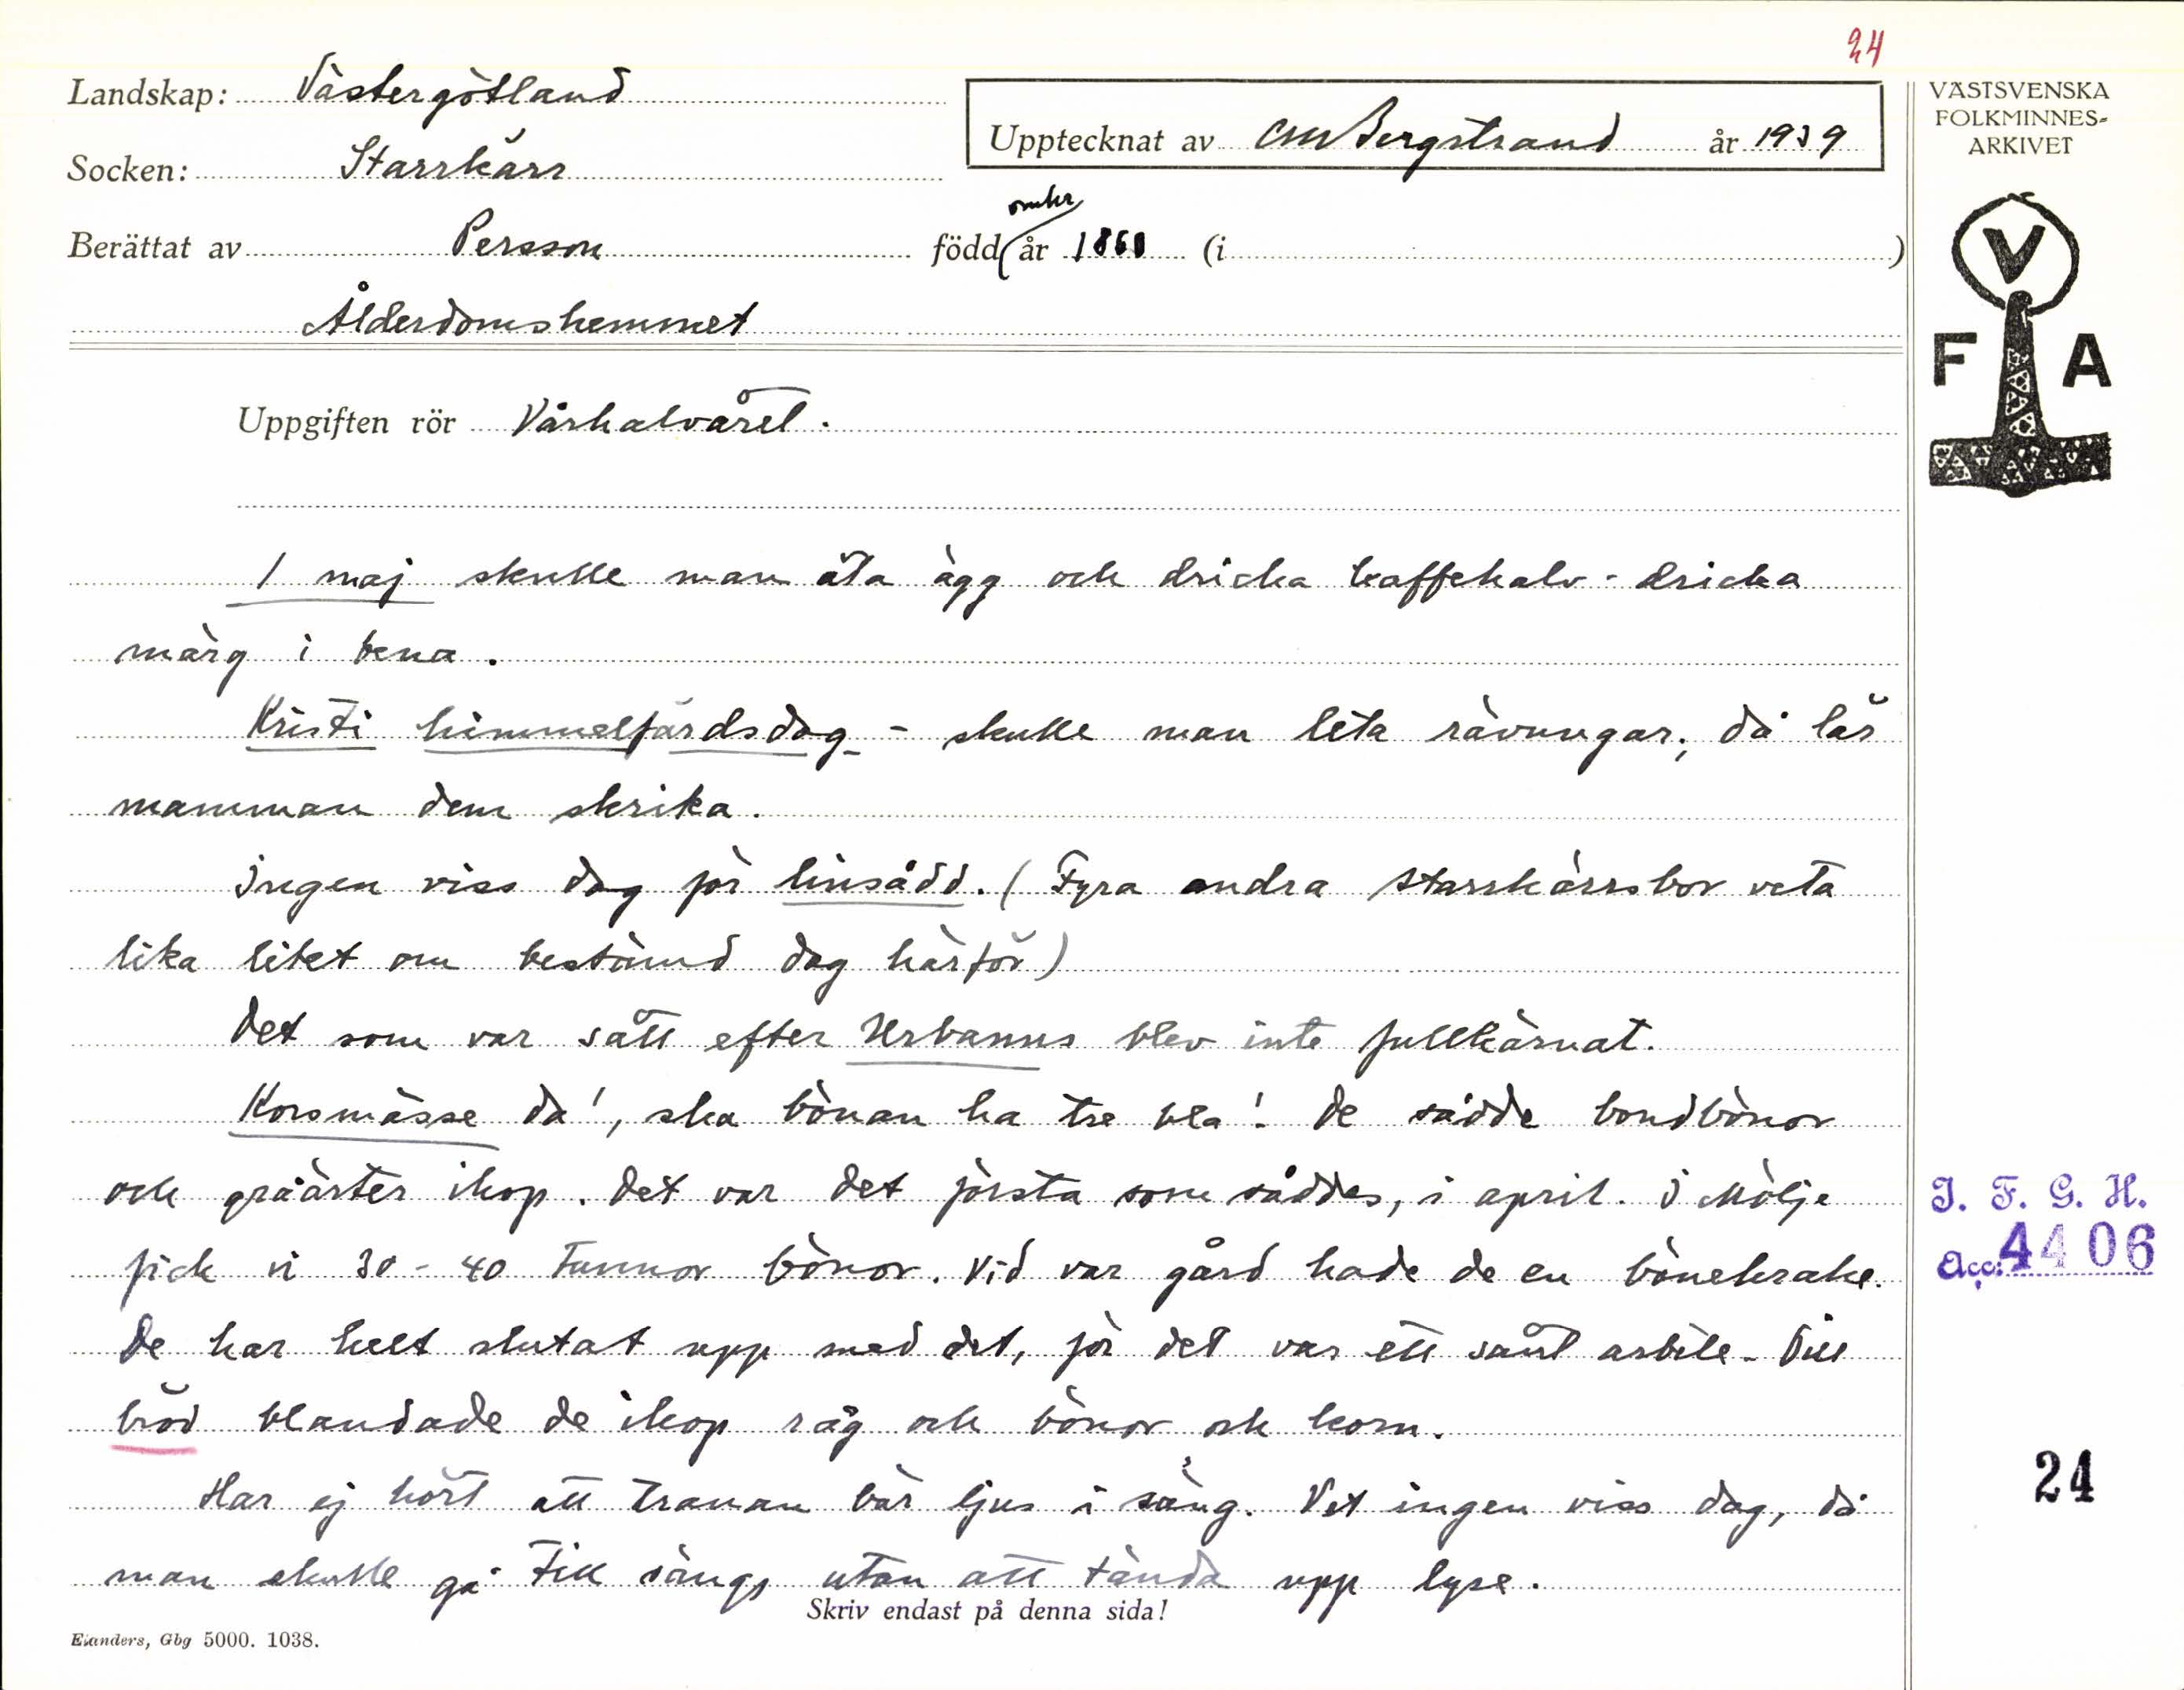 24
Landskap: Västergötland
Upptecknat av CM Bergstrand år 1939
VÄSTSVENSKA
FOLKMINNES-
ARKIVET
Socken: Starrkärr
Berättat av Persson född omkr år 1860 (i )
Ålderdomshemmet
V
F A
Uppgiften rör Vårhalvåret.
1 maj skulle man äta ägg och dricka kaffehalv - dricka
märg i bena.
Kristi himmelfärdsdag - skulle man leta rävungar; då lär
mamman dem skrika.
Ingen viss dag för linsådd. (Fyra andra Starrkärrsbor veta
lika litet om bestämd dag härför)
Det som var sått efter Urbanus blev inte fullkärnat.
Korsmässe da', ska bönan ha tre bla'. De sådde bondbönor
och gråärter ihop. Det var det första som såddes, i april. I Mölje
fick vi 30-40 tunnor bönor. Vid var gård hade de en bönekrake.
De har helt slutat upp med det, för det var ett sånt arbete. Till
bröd blandade de ihop råg och bönor och korn.
Har ej hört att tranan bär ljus i säng. Vet ingen viss dag, då
man skulle gå till sängs utan att tända upp lyse.
Skriv endast på denna sida!
Elanders, Gbg 5000. 1038.
I. F. G. H.
Acc: 4406
24